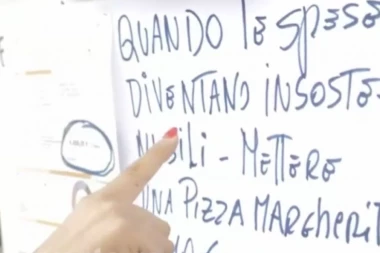 QUANDO le SPESE
DIVENTANO INSOSTE
NIBILI - METTERE
UNA PIZZA MARGHERIT